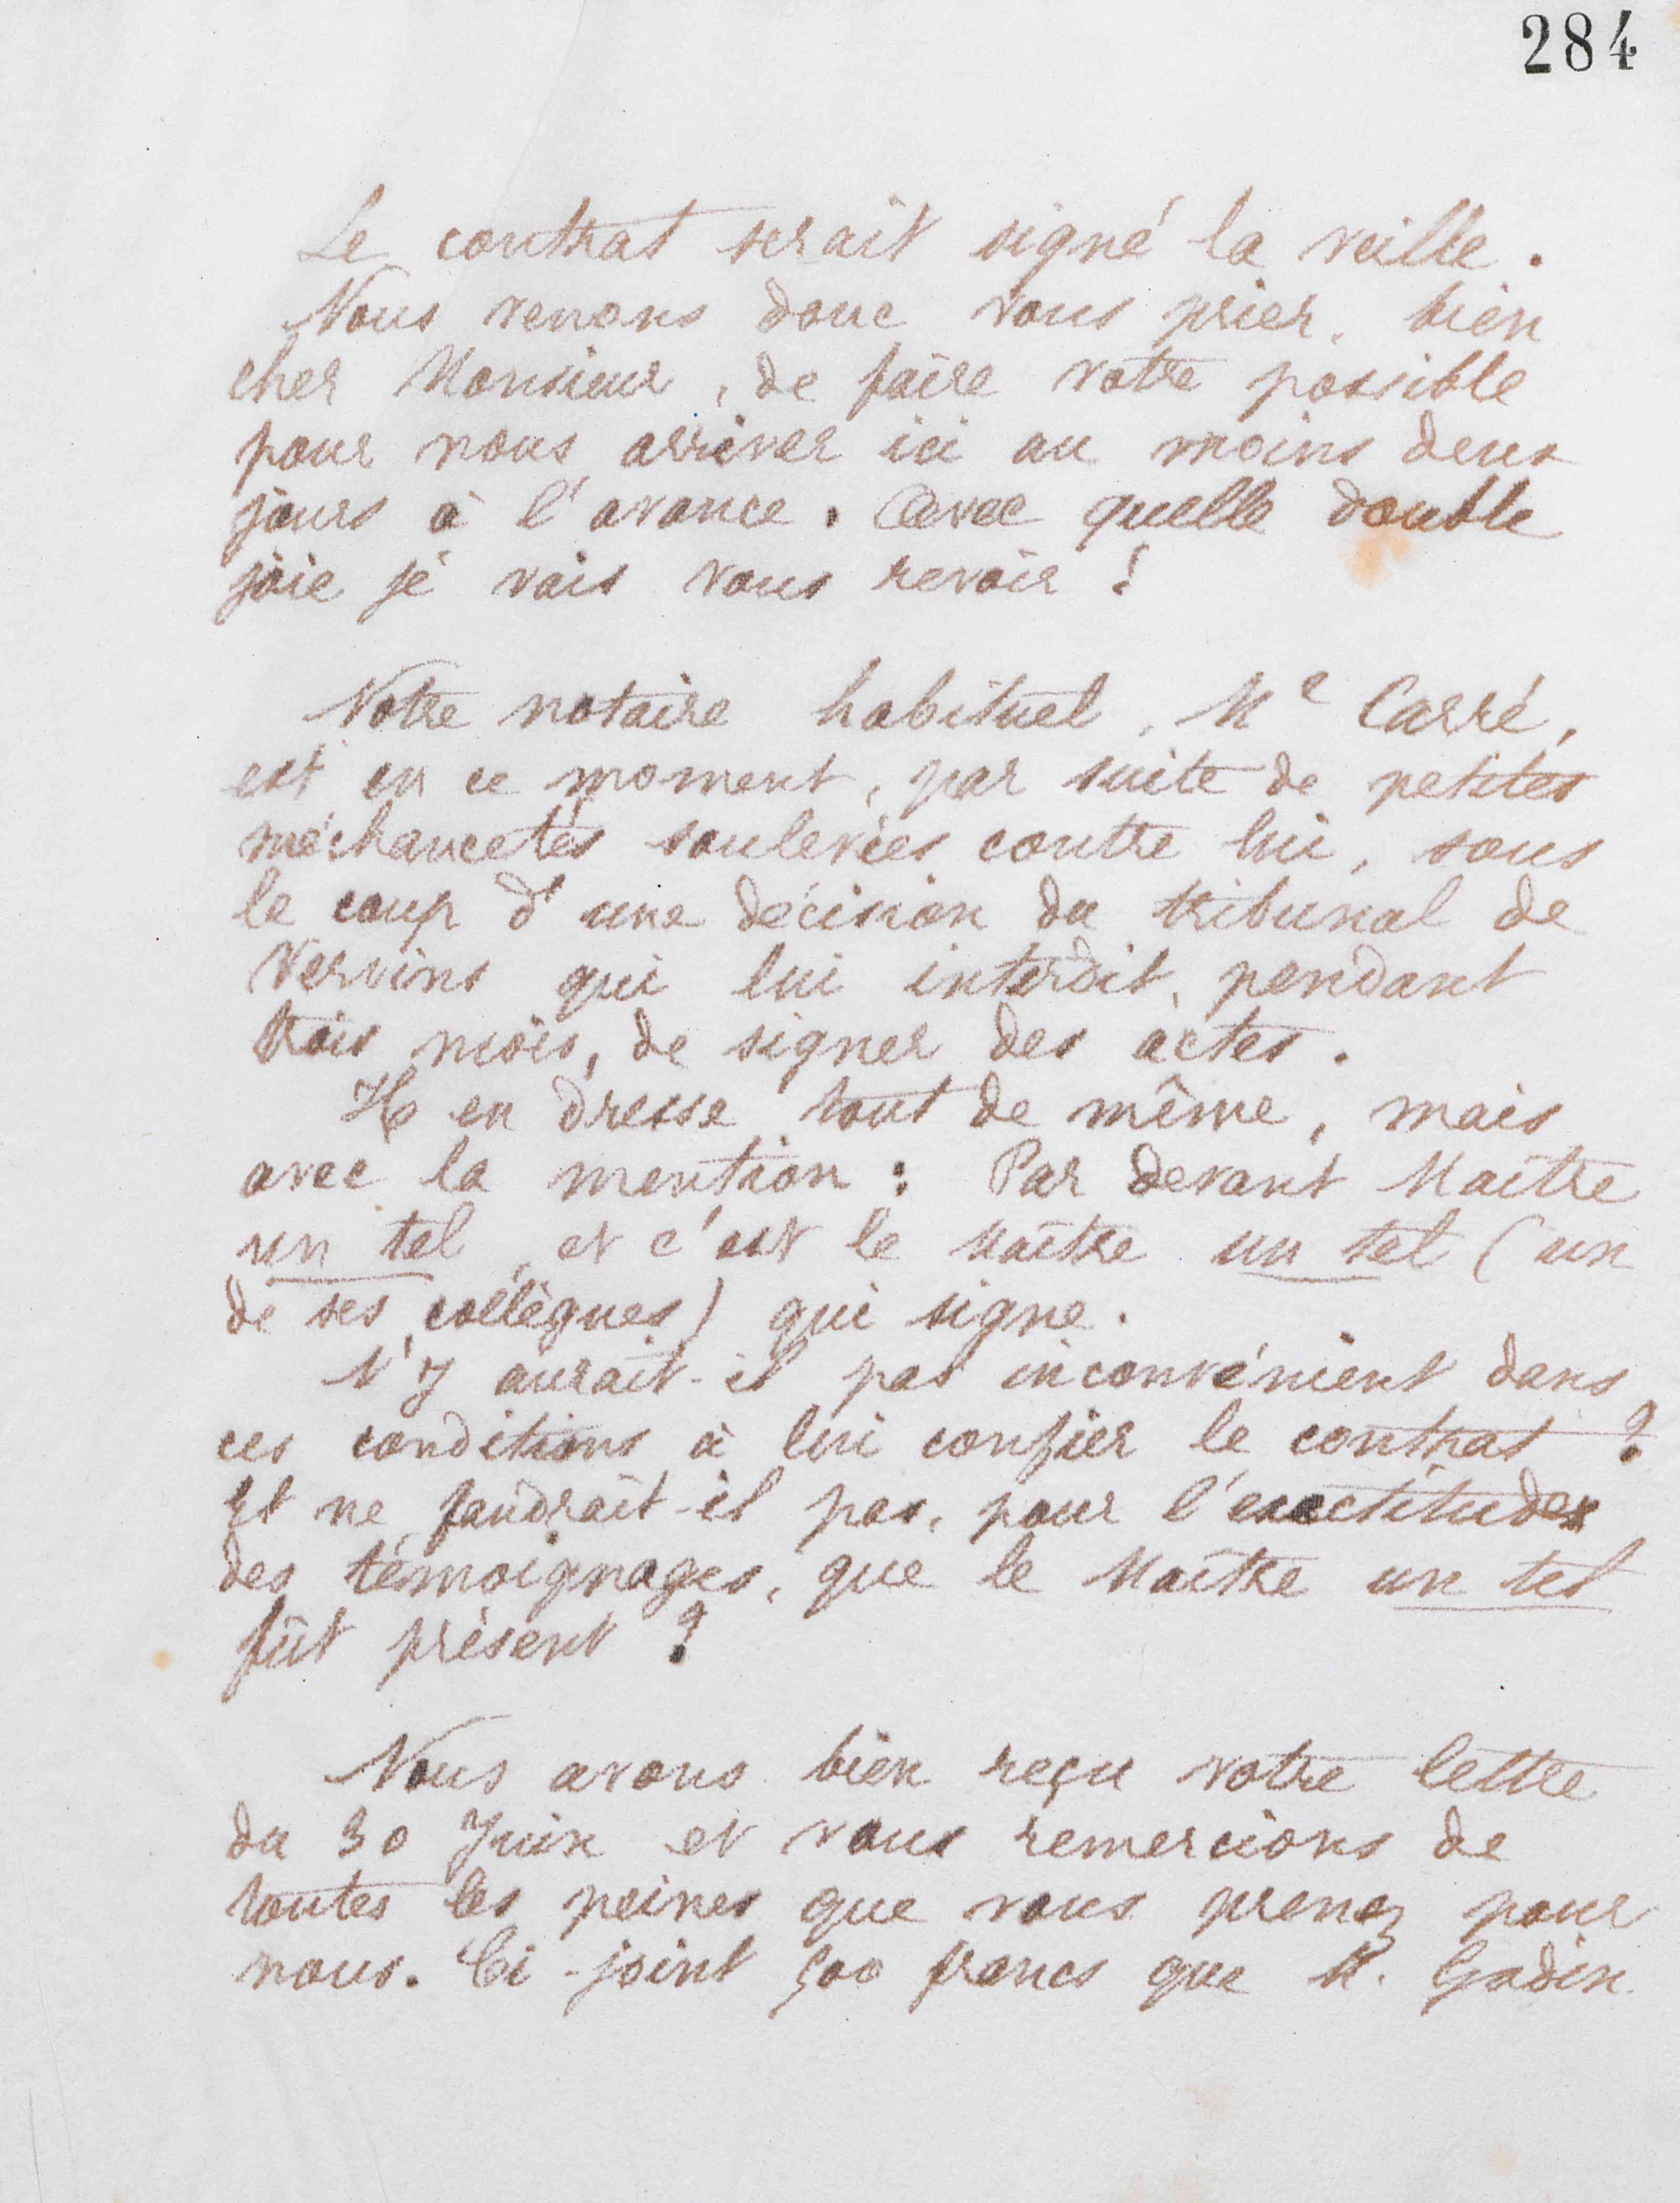 284
Le contrat serait signé la veille.
Nous venons donc vous prier, bien
cher Monsieur, de faire votre possible
pour nous arriver ici au moins deux
jours à l'avance. Avec quelle double
joie je vais vous revoir !
Notre notaire habituel, Me Carré,
est en ce moment, par suite de petites
méchancetés soulevées contre lui, sous
le coup d'une décision du tribunal de
Vervins qui lui interdit, pendant
trois mois, de signer des actes.
Il en dresse tout de même, mais
avec la mention : Par devant Maître
un tel, et c'est le Maître un tel (un
de ses collègues) qui signe.
N'y aurait-il pas inconvénient dans
ces conditions à lui confier le contrat ?
Et ne faudrait-il pas, pour l'exactitude
des témoignages, que le Maître un tel
fût présent ?
Nous avons bien reçu votre lettre
du 30 Juin et vous remercions de
toutes les peines que vous prenez pour
nous. Ci-joint 500 francs que M. Godin